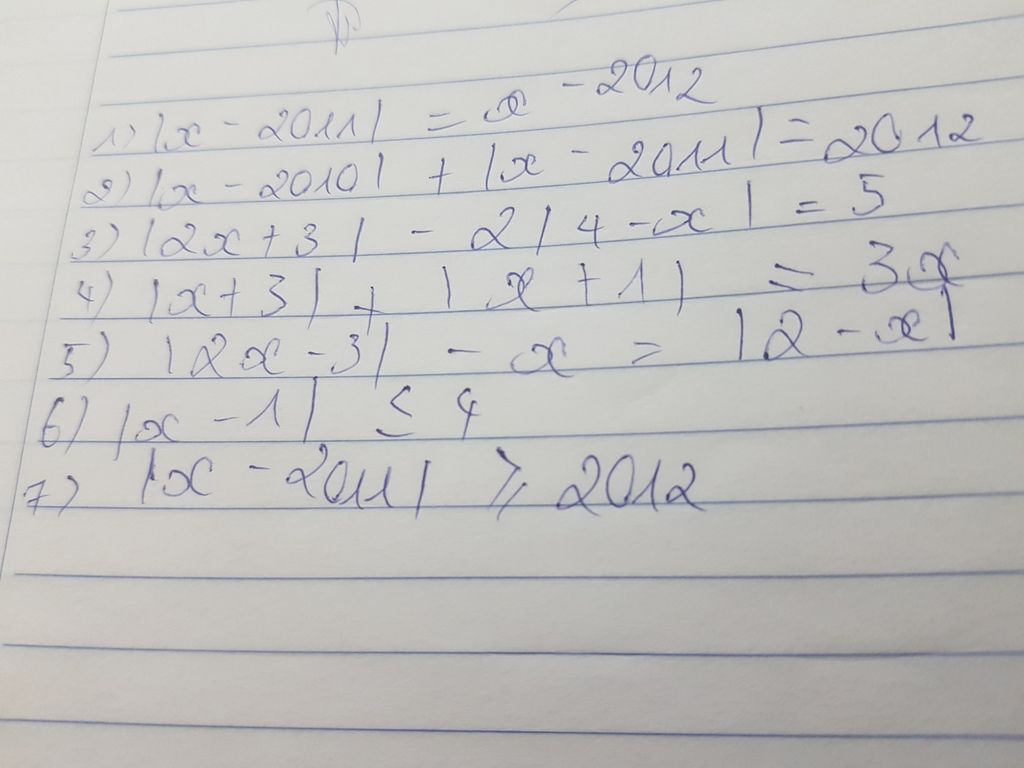 1) |x - 2011| = x - 2012
2) |x - 2010| + |x - 2011| = 2012
3) |2x + 3| - 2|4 - x| = 5
4) |x + 3| + |x + 1| = 3x
5) |2x - 3| - x = |2 - x|
6) |x - 1| ≤ 4
7) |x - 2011| ≥ 2012